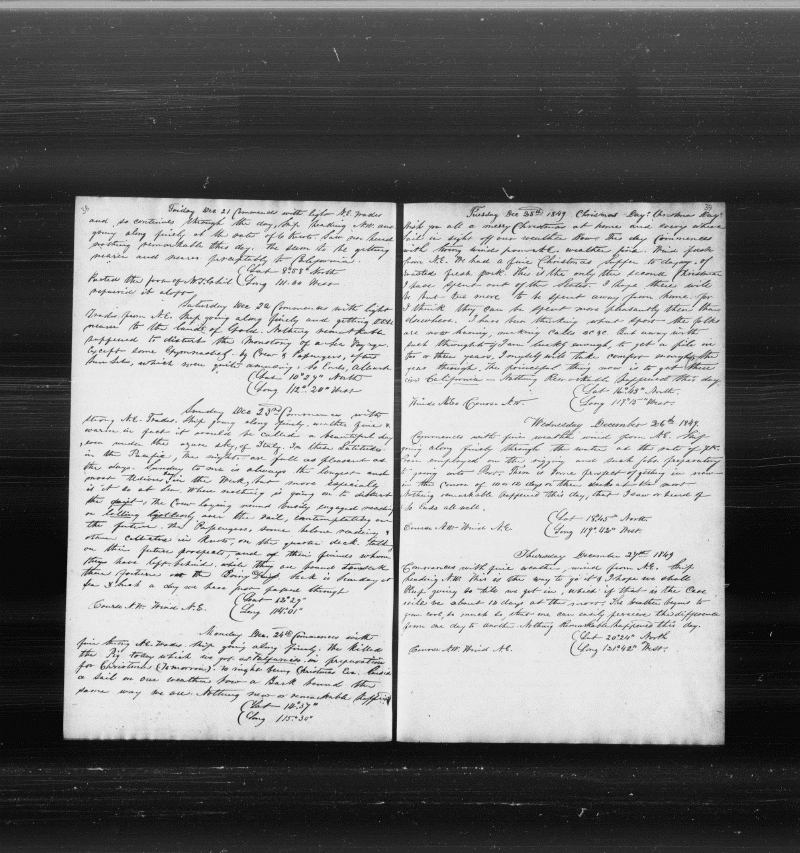 38
Friday Dec 21 Commences with light N.E. Trades
and so continues through the day, Ship heading N.W. and
going along finely at the rate of 6 Knots. Saw nor heard
nothing remarkable this day. We seem to be getting
nearer and nearer perceptably to California.
Lat 8°58" North
Long 111.00 West
Parted the foot of
repaired it aloft
Saturday Dec 22 Commences with light
Trades from N.E. Ship going along finely and getting
nearer to the land of Gold. Nothing remarkable
happened to disturb the Monotony of a Sea Voyage.
except some by Crew & Passengers, after
which were quite amusing, So Ends,
Lat 10°27" North
Long 112°20" West
Sunday Dec 23rd Commences with
strong N.E. Trades. Ship going along finely. weather fine &
warm in fact it would be called a beautiful day
even under the azure sky of Italy. In these Latitudes
in the Pacific, the nights are full as pleasant as
the days. Sunday to me is always the longest and
most tedious day in the Week, but more especially
is it so at Sea where nothing is going on to disturb
the quiet, the Crew laying round busily engaged reading
or lolling over the rail, contemplating on
the future. the Passengers, some below reading &
others collected in Knots, on the quarter deck. talking
on their future prospects, and of their friends whom
they have left behind, while they are bound to seek
their fortune
Sea & such a day we have just passed through
Lat 12°29"
Long 114°01"
Course N.W. Wind N.E.
Monday Dec. 24th Commences with
fine strong N.E. Trades. Ship going along finely. We Killed
the Pig today which we got at Valparaiso in preparation
for Christmas (Tomorrow). to night being Christmas Eve.
a sail on our weather bow a Bark bound the
same way we are. Nothing new or remarkable happened
Lat 14°37"
Long 115°30"
39
Tuesday Dec 25th 1849 Christmas Day! Christmas Day!
Wish you all a merry Christmas at home and every where
Sail in sight off our weather Bow. this day Commences
with strong winds fine. Wind fresh
from N.E. We had a fine Christmas Supper to day of
roasted fresh pork. This is the only the second Christmas
I have spent out of the States. I hope there will
be but two more to be spent away from home. for
I think they can be spent more pleasantly there than
elsewhere. I have been thinking what sport the folks
are now having, making calls &c &c. But away with
such thoughts, if I am lucky enough, to get a pile in
two or three years, I will take comfort enough the
year through. the principal thing now is to get there
into California - Nothing Remarkable happened this day
Lat 16°43" North.
Long 117°15" West.
Winds N.E. Course N.W.
Wednesday December 26th 1849.
Commences with fine weather wind from N.E. Ship
going along finely through the water at the rate of
men employed on the rigging and small jobs preparatory
to going into Port. There is some prospect of getting in
in the course of 10 or 12 days
Nothing remarkable happened this day, that I saw or heard of
So Ends all well.
Lat 18°45" North
Long 119°42" West.
Course N.W. Wind N.E.
Thursday December 27th 1849
Commences with fine weather, wind from N.E. Ship
heading N.W. This is the way to go it & I hope we shall
Keep going so till we get in, which if that is the case
will be about 10 days at the most. The weather begins to
grow cool, so much so, that we can easily perceive the difference
from one day to another Nothing Remarkable happened this day.
Lat 20°24" North
Long 121°42" West.
Course N.W. Wind N.E.